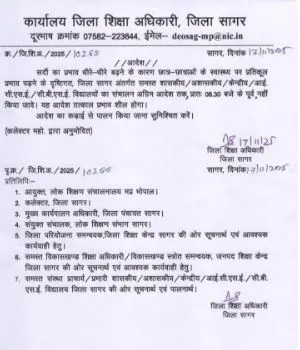 कार्यालय जिला शिक्षा अधिकारी, जिला सागर
दूरभाष क्रमांक 07582–223644, ईमेल– deosag-mp@nic.in
क्र./जि.शि.अ./2025/10258 सागर, दिनांक 17/11/2025
//आदेश//
सर्दी का प्रभाव धीरे–धीरे बढ़ने के कारण छात्र–छात्राओं के स्वास्थ्य पर प्रतिकूल
प्रभाव पड़ने के दृष्टिगत, जिला सागर अंतर्गत समस्त शासकीय/अशासकीय/केन्द्रीय/आई.
सी.एस.ई./सी.बी.एस.ई. विद्यालयों का संचालन अग्रिम आदेश तक, प्रातः 08.30 बजे के पूर्व, नहीं
किया जावे। यह आदेश तत्काल प्रभाव शील होगा।
आदेश का कड़ाई से पालन किया जाना सुनिश्चित करें।
(कलेक्टर महो. द्वारा अनुमोदित)
17/11/25
जिला शिक्षा अधिकारी
जिला सागर
पृ.क्र./ जि.शि.अ./2025/10258 सागर, दिनांक 17/11/2025
प्रतिलिपिः–
1. आयुक्त, लोक शिक्षण संचालनालय मप्र भोपाल।
2. कलेक्टर, जिला सागर।
3. मुख्य कार्यपालन अधिकारी, जिला पंचायत सागर।
4. संयुक्त संचालक, लोक शिक्षण संभाग सागर।
5. जिला परियोजना समन्वयक, जिला शिक्षा केन्द्र सागर की ओर सूचनार्थ एवं आवश्यक
कार्यवाही हेतु।
6. समस्त विकासखण्ड शिक्षा अधिकारी/विकासखण्ड स्त्रोत समन्वयक, जनपद शिक्षा केन्द्र
जिला सागर की ओर सूचनार्थ एवं आवश्यक कार्यवाही हेतु।
7. समस्त संस्था प्राचार्य/प्रभारी शासकीय/अशासकीय/केन्द्रीय/आई.सी.एस.ई./सी.बी.
एस.ई. विद्यालय जिला सागर की ओर सूचनार्थ एवं पालनार्थ।
जिला शिक्षा अधिकारी
जिला सागर